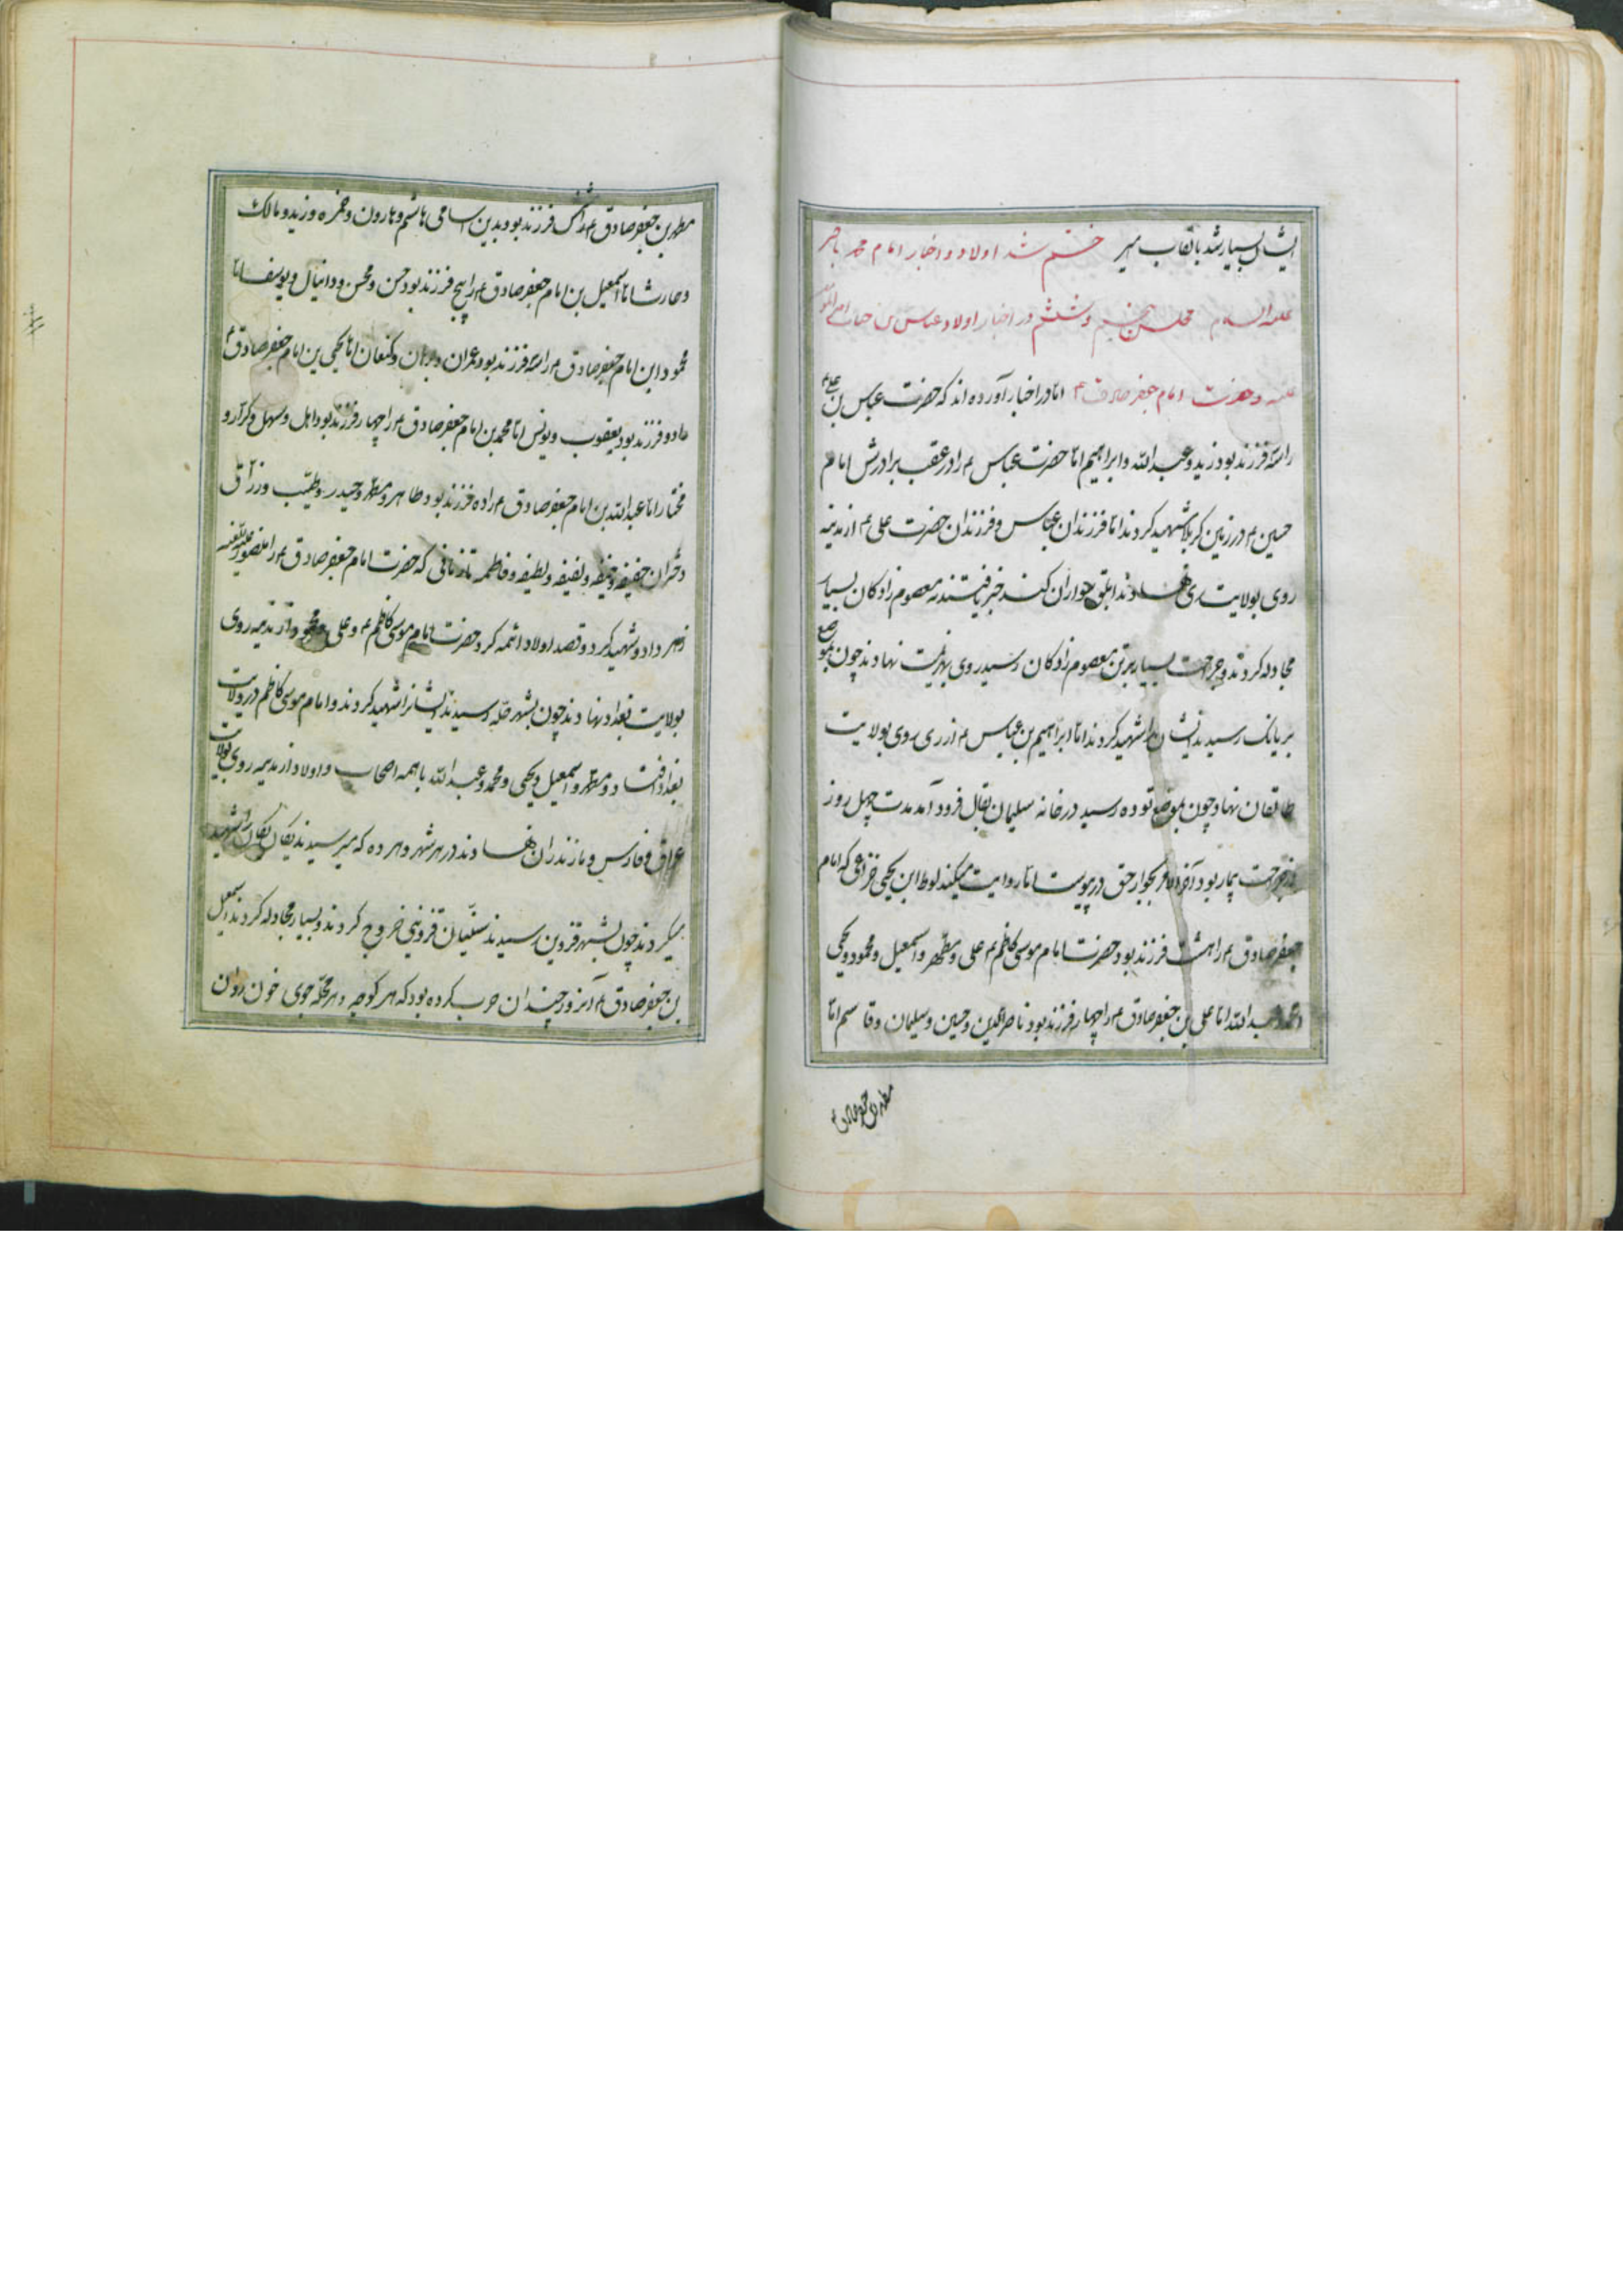 ایشان بسیار شد بالقاب میر ختم شد اولاد و اخبار امام محمد باقر
علیه السلام مجلس و ششم در اخبار اولاد عباس بن جناب امیر
علیه و حضرت امام جعفر صادق ع اما در اخبار آورده اند که حضرت عباس بن علی ع
را سه فرزند بود زید و عبد الله و ابراهیم اما حضرت عباس ع را در عقب برادرش امام
حسین ع در زمین کربلا شهید کردند اما فرزندان عباس و فرزندان حضرت علی ع از مدینه
روی بولایت ری نهادند خبر یافتند معصوم زادکان بسیار
مجادله کردند و جراحت بسیار بر تن معصوم زادکان رسید روی بهزیمت نهادند چون بموضع
بریانک رسیدند ایشان را شهید کردند اما ابراهیم بن عباس ع از ری روی بولایت
طالقان نهاد چون بموضع توده رسید در خانه سلیمان بقال فرود آمد مدت چهل روز
جراحت بیمار بود آخر الامر بجوار حق در پیوست اما روایت میکند لوط ابن یحیی خزاعی که امام
جعفر صادق ع را هشت فرزند بود حضرت امام موسی کاظم ع علی و مطهر و اسمعیل و محمود و یحیی
و محمد و عبد الله اما علی بن جعفر صادق ع را چهار فرزند بود ناصر الدین و حسین و سلیمان و قاسم اما
مطهر بن جعفر صادق ع
مطهر بن جعفر صادق ع را شش فرزند بود بدین اسامی هاشم و هارون و حمزه و زید و مالک
و حارث اما اسمعیل بن امام جعفر صادق ع را پنج فرزند بود حسن و محسن و دانیال و یوسف اما
محمود ابن امام جعفر صادق ع را سه فرزند بود عمران و برهان و کنعان اما یحیی بن امام جعفر صادق ع
را دو فرزند بود یعقوب و یونس اما محمد بن امام جعفر صادق ع را چهار فرزند بود اهل و سهل و کرار و
مختار اما عبد الله بن امام جعفر صادق ع را ده فرزند بود طاهر و مطهر و حیدر و طیب و رزاق
دختران و لطیفه و فاطمه تا زمانی که حضرت امام جعفر صادق ع را منصور علیه اللعنه
زهر داد و شهید کرد و قصد اولاد ائمه کرد حضرت امام موسی کاظم ع و علی و محمود از مدینه روی
بولایت بغداد نهادند چون بشهر حله رسیدند ایشانرا شهید کردند و امام موسی کاظم در ولایت
بغداد و مطهر و اسمعیل و یحیی و محمد و عبد الله با همه اصحاب و اولاد از مدینه روی بولایت
عراق و فارس و مازندران نهادند در هر شهر و هر ده که میرسیدند یکان یکان را شهید
میکردند چون بشهر قزوین رسیدند سنیان قزوینی خروج کردند و بسیار مجادله کردند اسمعیل
بن جعفر صادق ع آنروز چندان حرب کرده بود که هر کوچه و هر محله جوی خون روان